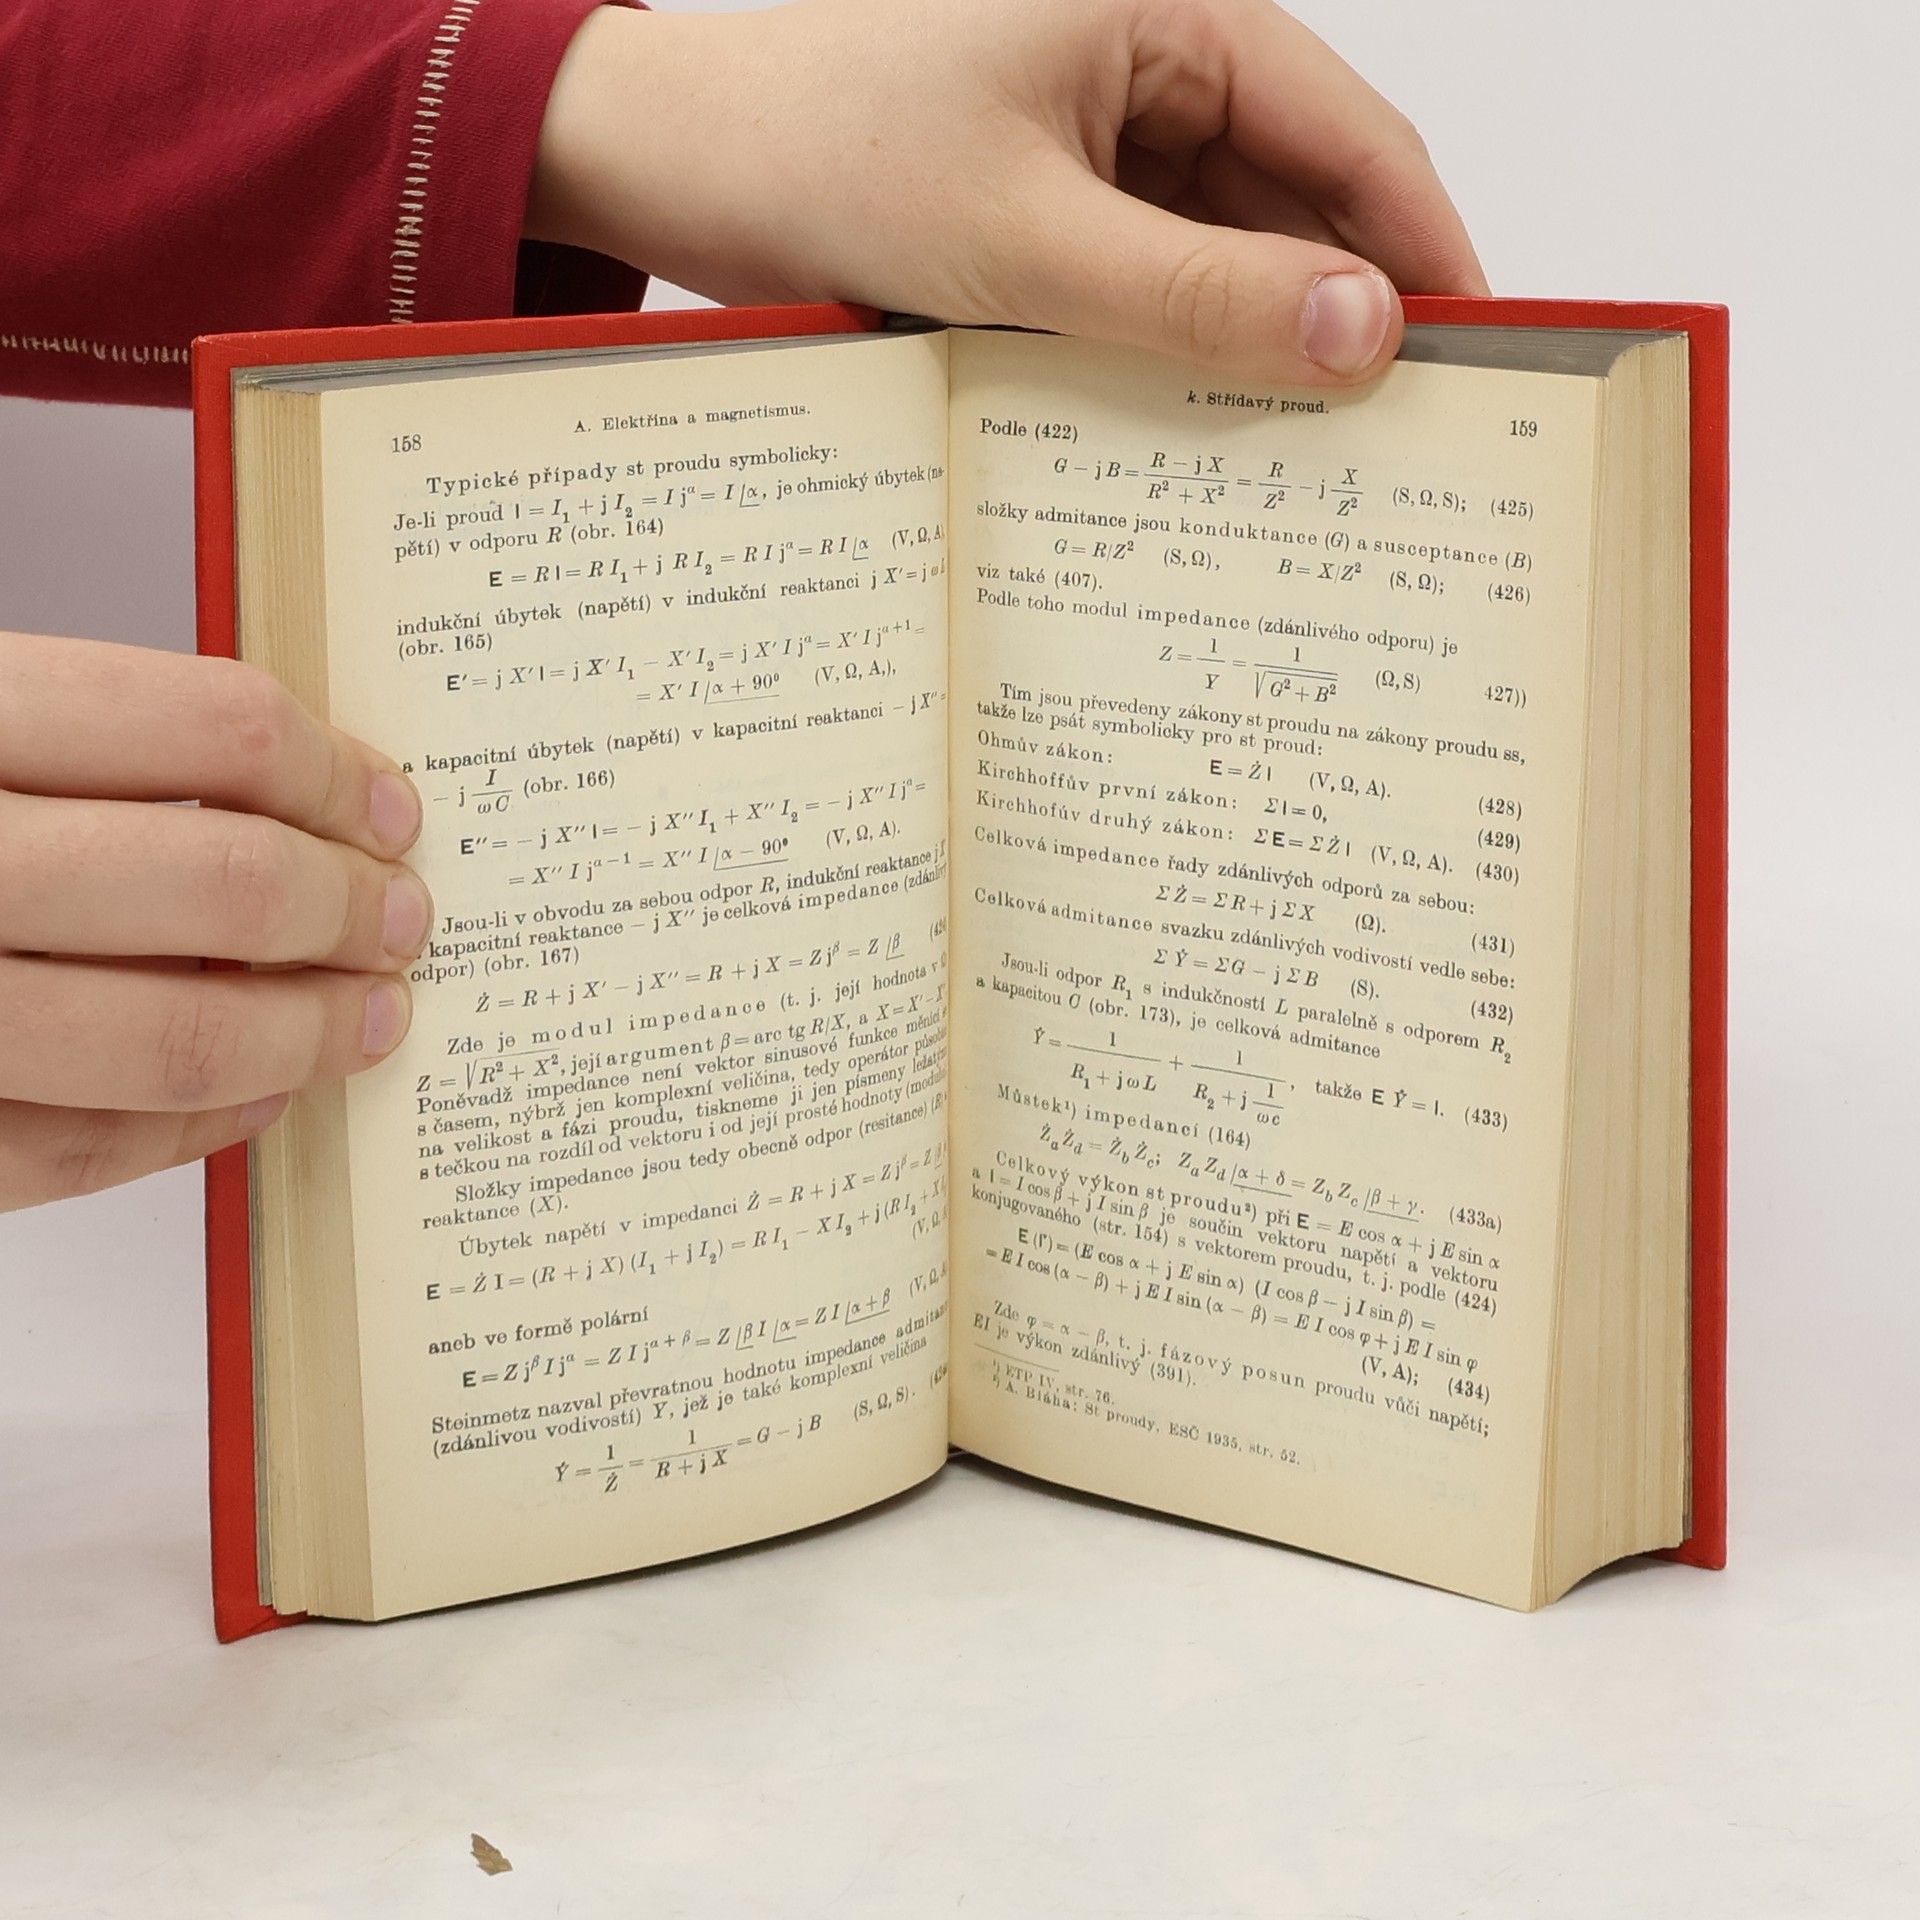 158
A. Elektřina a magnetismus.
Typické případy st proudu symbolicky:
Je-li proud I = I₁ + j I₂ = I jᵅ = I /α, je ohmický úbytek (na-
pětí) v odporu R (obr. 164)
E = R I = R I₁ + j R I₂ = R I jᵅ = R I /α (V, Ω, A)
indukční úbytek (napětí) v indukční reaktanci j X′ = j ω L
(obr. 165)
E′ = j X′ I = j X′ I₁ − X′ I₂ = j X′ I jᵅ = X′ I jᵅ⁺¹ =
= X′ I /α + 90° (V, Ω, A,),
a kapacitní úbytek (napětí) v kapacitní reaktanci − j X″ =
− j I/ωC (obr. 166)
E″ = − j X″ I = − j X″ I₁ + X″ I₂ = − j X″ I jᵅ =
= X″ I jᵅ⁻¹ = X″ I /α − 90° (V, Ω, A).
Jsou-li v obvodu za sebou odpor R, indukční reaktance j X′
kapacitní reaktance − j X″ je celková impedance (zdánlivý
odpor) (obr. 167)
Ż = R + j X′ − j X″ = R + j X = Z jᵝ = Z /β
Zde je modul impedance (t. j. její hodnota v Ω
Z = √(R² + X²), její argument β = arc tg R/X, a X = X′ − X″
Poněvadž impedance není vektor sinusové funkce měnící se
s časem, nýbrž jen komplexní veličina, tedy operátor
na velikost a fázi proudu, tiskneme ji jen písmeny ležatými
s tečkou na rozdíl od vektoru i od její prosté hodnoty
Složky impedance jsou tedy obecně odpor (resitance) (R)
reaktance (X).
Úbytek napětí v impedanci Ż = R + j X = Z jᵝ = Z /β
E = Ż I = (R + j X) (I₁ + j I₂) = R I₁ − X I₂ + j (R I₂ + X I₁
(V, Ω, A
aneb ve formě polární
E = Z jᵝ I jᵅ = Z I jᵅ⁺ᵝ = Z /β I /α = Z I /α + β (V, Ω, A
Steinmetz nazval převratnou hodnotu impedance
(zdánlivou vodivostí) Y, jež je také komplexní veličina
Ẏ = 1/Ż = 1/(R + j X) = G − j B (S, Ω, S).
k. Střídavý proud.
159
Podle (422)
G − j B = (R − j X)/(R² + X²) = R/Z² − j X/Z² (S, Ω, S); (425)
složky admitance jsou konduktance (G) a susceptance (B)
G = R/Z² (S, Ω), B = X/Z² (S, Ω); (426)
viz také (407).
Podle toho modul impedance (zdánlivého odporu) je
Z = 1/Y = 1/√(G² + B²) (Ω, S) 427))
Tím jsou převedeny zákony st proudu na zákony proudu ss,
takže lze psát symbolicky pro st proud:
Ohmův zákon: E = Ż I (V, Ω, A). (428)
Kirchhoffův první zákon: Σ I = 0, (429)
Kirchhofúv druhý zákon: Σ E = Σ Ż I (V, Ω, A). (430)
Celková impedance řady zdánlivých odporů za sebou:
Σ Ż = Σ R + j Σ X (Ω). (431)
Celková admitance svazku zdánlivých vodivostí vedle sebe:
Σ Ẏ = Σ G − j Σ B (S). (432)
Jsou-li odpor R₁ s indukčností L paralelně s odporem R₂
a kapacitou C (obr. 173), je celková admitance
Ẏ = 1/(R₁ + j ω L) + 1/(R₂ + j 1/ωc), takže E Ẏ = I. (433)
Můstek¹) impedancí (164)
Żₐ Ż_d = Ż_b Ż_c; Zₐ Z_d /α + δ = Z_b Z_c /β + γ. (433a)
Celkový výkon st proudu²) při E = E cos α + j E sin α
a I = I cos β + j I sin β je součin vektoru napětí a vektoru
konjugovaného (str. 154) s vektorem proudu, t. j. podle (424)
E (I′) = (E cos α + j E sin α) (I cos β − j I sin β) =
= E I cos (α − β) + j E I sin (α − β) = E I cos φ + j E I sin φ
(V, A); (434)
Zde φ = α − β, t. j. fázový posun proudu vůči napětí;
EI je výkon zdánlivý (391).
¹) ETP IV, str. 76.
²) A. Bláha: St proudy, ESČ 1935, str. 52.